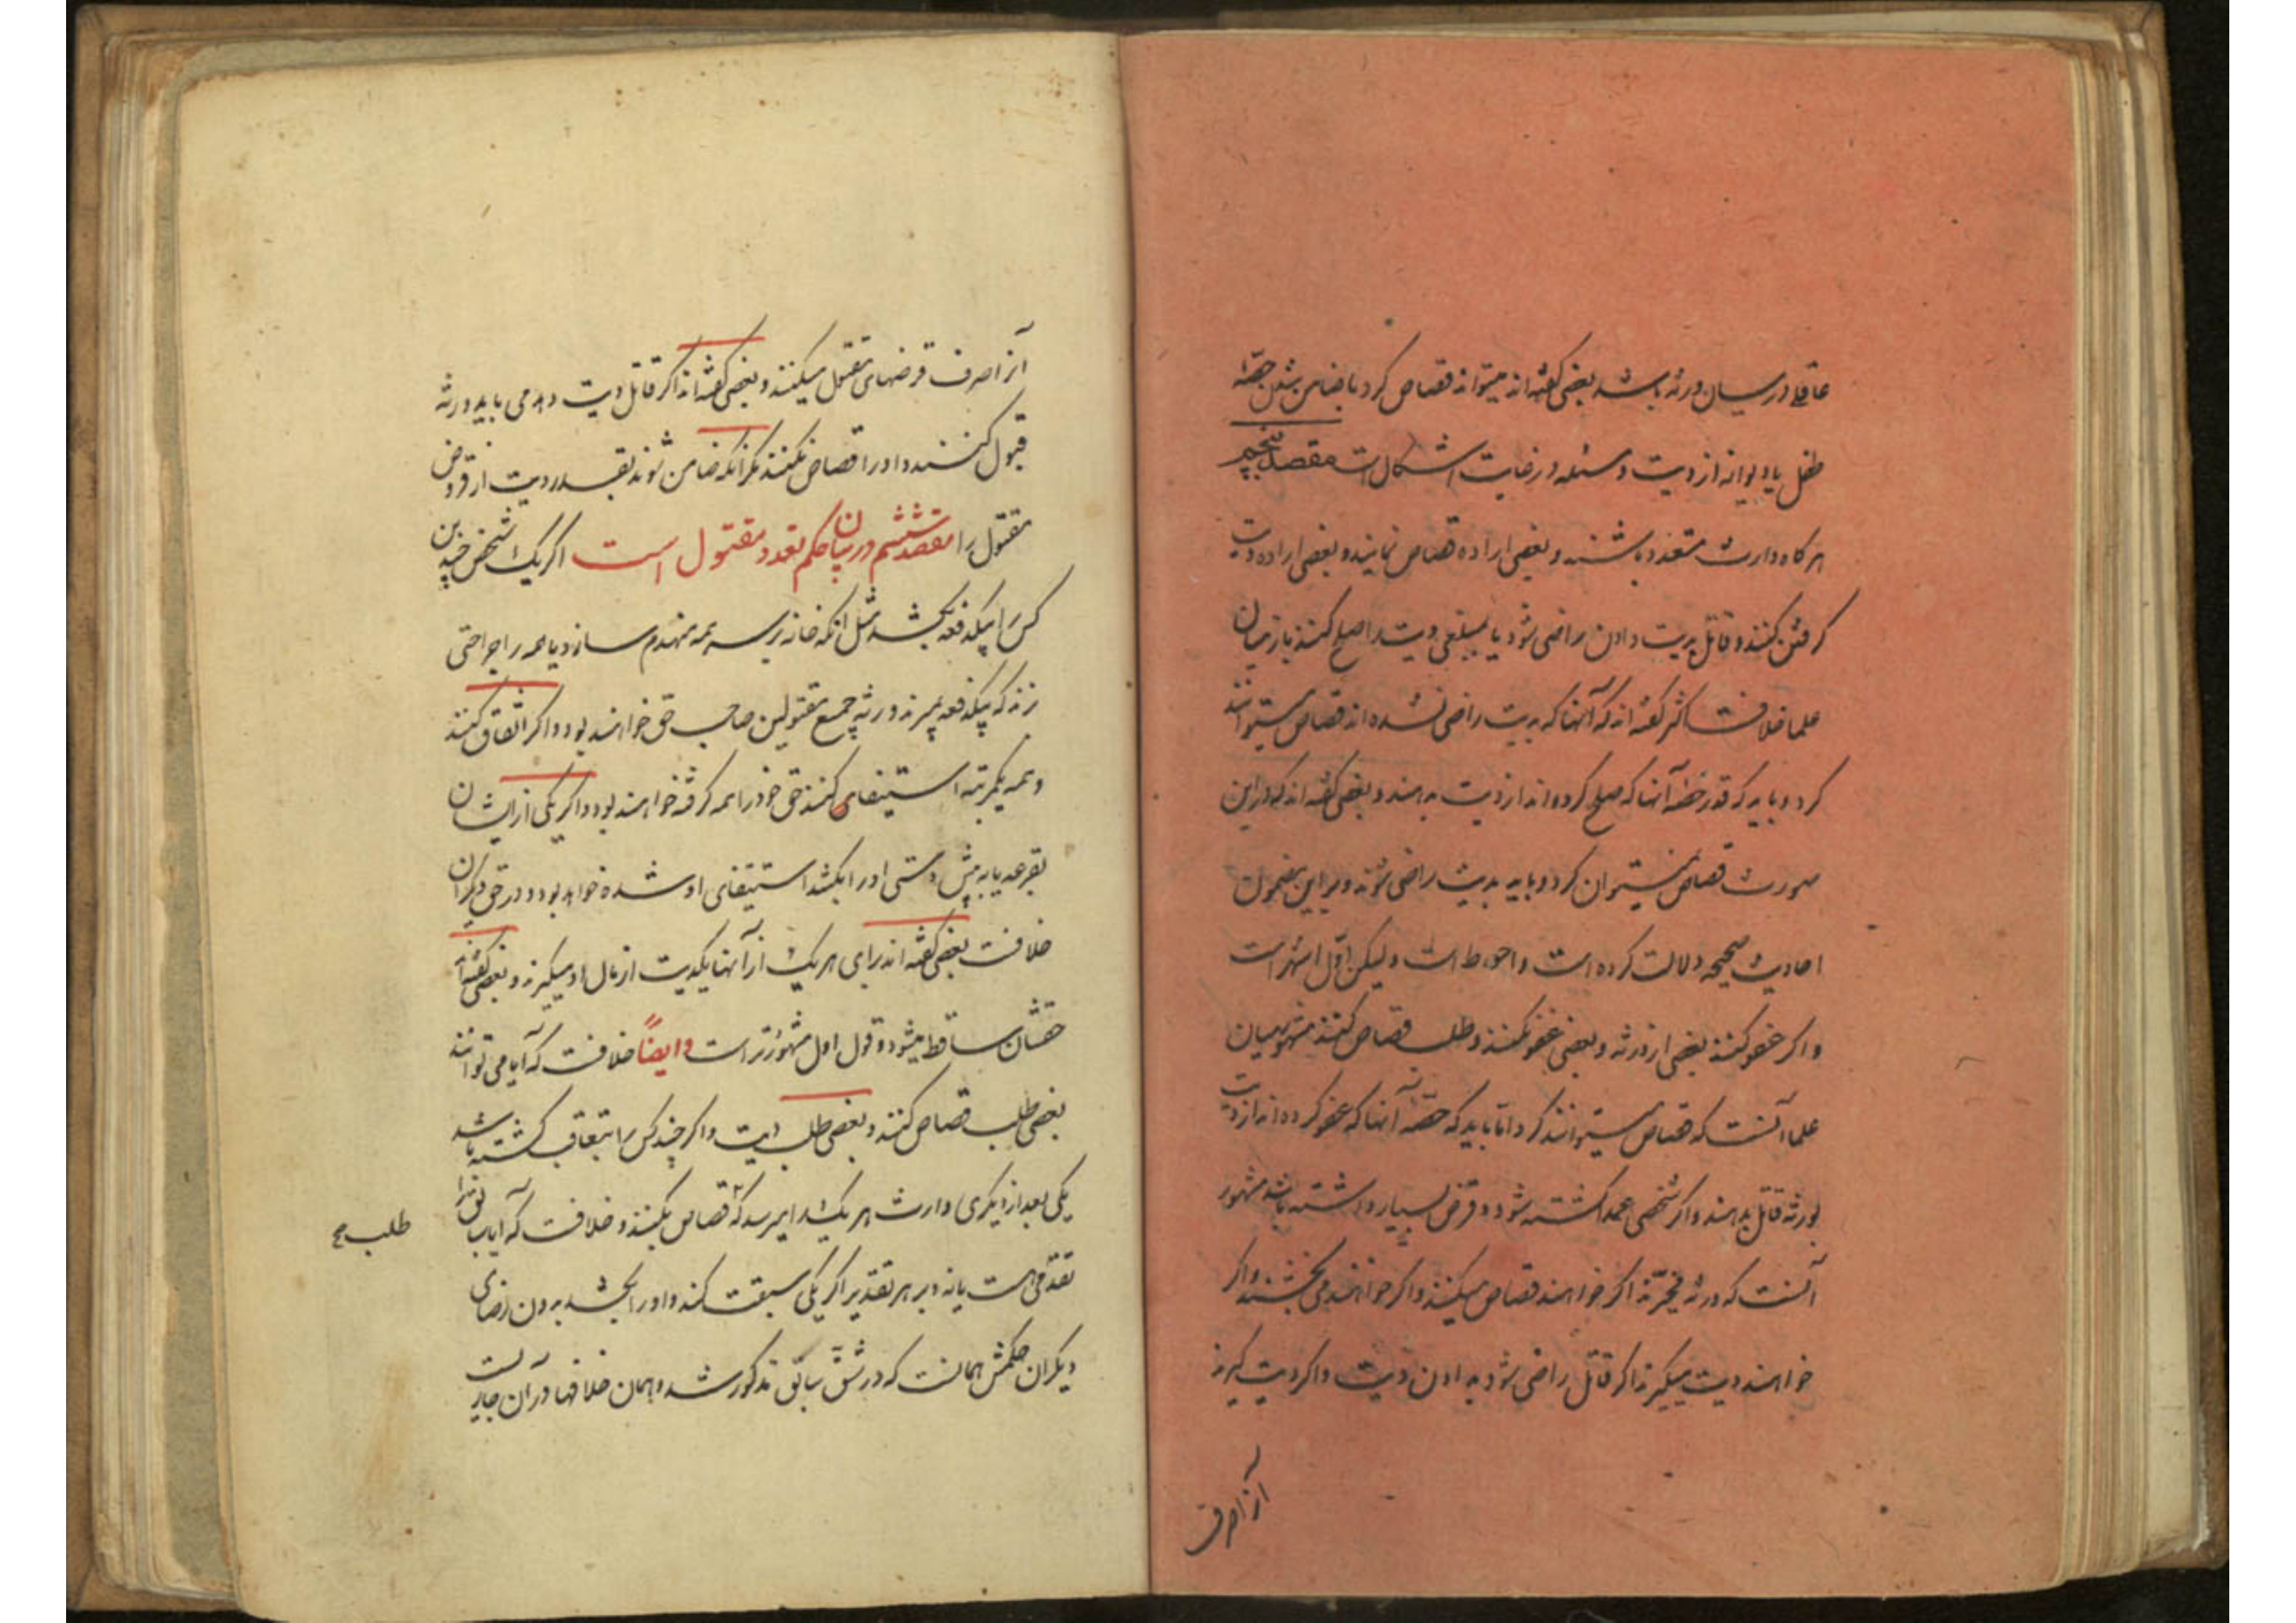 عاقلی در میان ورثه باشد بعضی گفته‌اند میتواند قصاص کرد با ضامن شدن حصّهٔ
طفل یا دیوانه از دیت و مسئله در غایت اشکال است مقصد پنجم
هرگاه وارث متعدد باشند و بعضی اراده قصاص نمایند و بعضی اراده دیت
گرفتن کنند و قاتل بدیت دادن راضی شود یا بمبلغی دیت را صلح کنند باز میان
علما خلافست اکثر گفته‌اند که آنها که بدیت راضی نشده‌اند قصاص میتوانند
کرد و باید که قدر حصّه آنها که صلح کرده‌اند از دیت بدهند و بعضی گفته‌اند که در این
صورت قصاص نمیتوان کرد و باید بدیت راضی شوند و بر این مضمون
احادیث صحیحه دلالت کرده است و احوط است و لیکن اوّل اشهر است
و اگر عفو کنند بعضی از ورثه و بعضی عفو نکنند و طلب قصاص کنند مشهور میان
علما آنست که قصاص میتوانند کرد امّا باید که حصّهٔ آنها که عفو کرده‌اند از دیت
بورثه قاتل بدهند و اگر شخصی عمداً کشته شود و قرض بسیار داشته باشد مشهور
آنست که ورثه مخیّرند اگر خواهند قصاص میکنند و اگر خواهند می‌بخشند و اگر
خواهند دیت میگیرند اگر قاتل راضی شود بدادن دیت و اگر دیت گیرند
آنرا صرف
آنرا صرف قرضهای مقتول میکنند و بعضی گفته‌اند اگر قاتل دیت دهد می باید ورثه
قبول کنند و او را قصاص نکنند مگر آنکه ضامن شوند بقدر دیت از قروض
مقتول را مقصد ششم در بیان حکم تعدد مقتول است اگر یک شخص چندین
کس را بیکدفعه بکشد مثل آنکه خانه بر سر همه منهدم سازد یا همه را جراحتی
زند که بیکدفعه بمیرند ورثه جمیع مقتولین صاحب حق خواهند بود و اگر اتّفاق کنند
و همه بیکمرتبه استیفای کنند حق خود را همه گرفته خواهند بود و اگر یکی از ایشان
بقرعه یا به پیش دستی او را بکشد استیفای او شده خواهد بود و در حق دیگران
خلافست بعضی گفته‌اند برای هر یک از آنها یکدیت از مال او میگیرند و بعضی گفته‌اند
حقشان ساقط میشود و قول اول مشهورتر است و ایضاً خلافست که آیا می توانند
بعضی طلب قصاص کنند و بعضی طلب دیت و اگر چند کس را بتعاقب کشته باشد
یکی بعد از دیگری وارث هر یک را میرسد که قصاص بکنند و خلافست که آیا
طلب صح
تقدمی هست یا نه و بر هر تقدیر اگر یکی سبقت کند و او را بکشد بدون رضای
دیگران حکمش همانست که در شقّ سابق مذکور شد و همان خلافها در آن جاریست